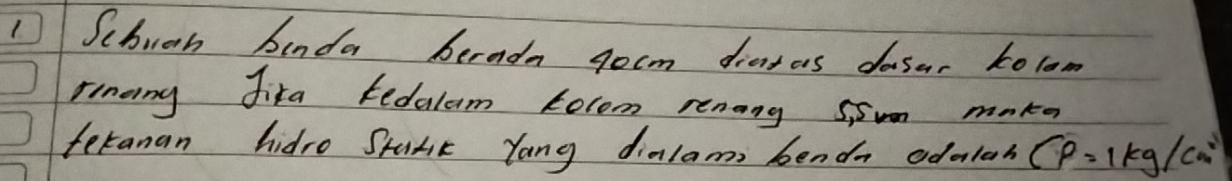 1 Sebuah benda berada 40cm diatas dasar kolam
renang Jika kedalam kolam renang 5,5 m maka
tekanan hidro Statik Yang dialami benda adalah (P=1kg/cm³